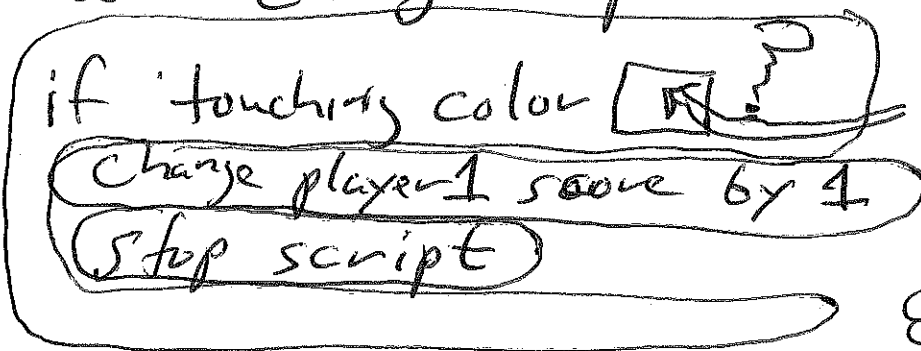 if touching color ?
Change player1 score by 1
Stop script